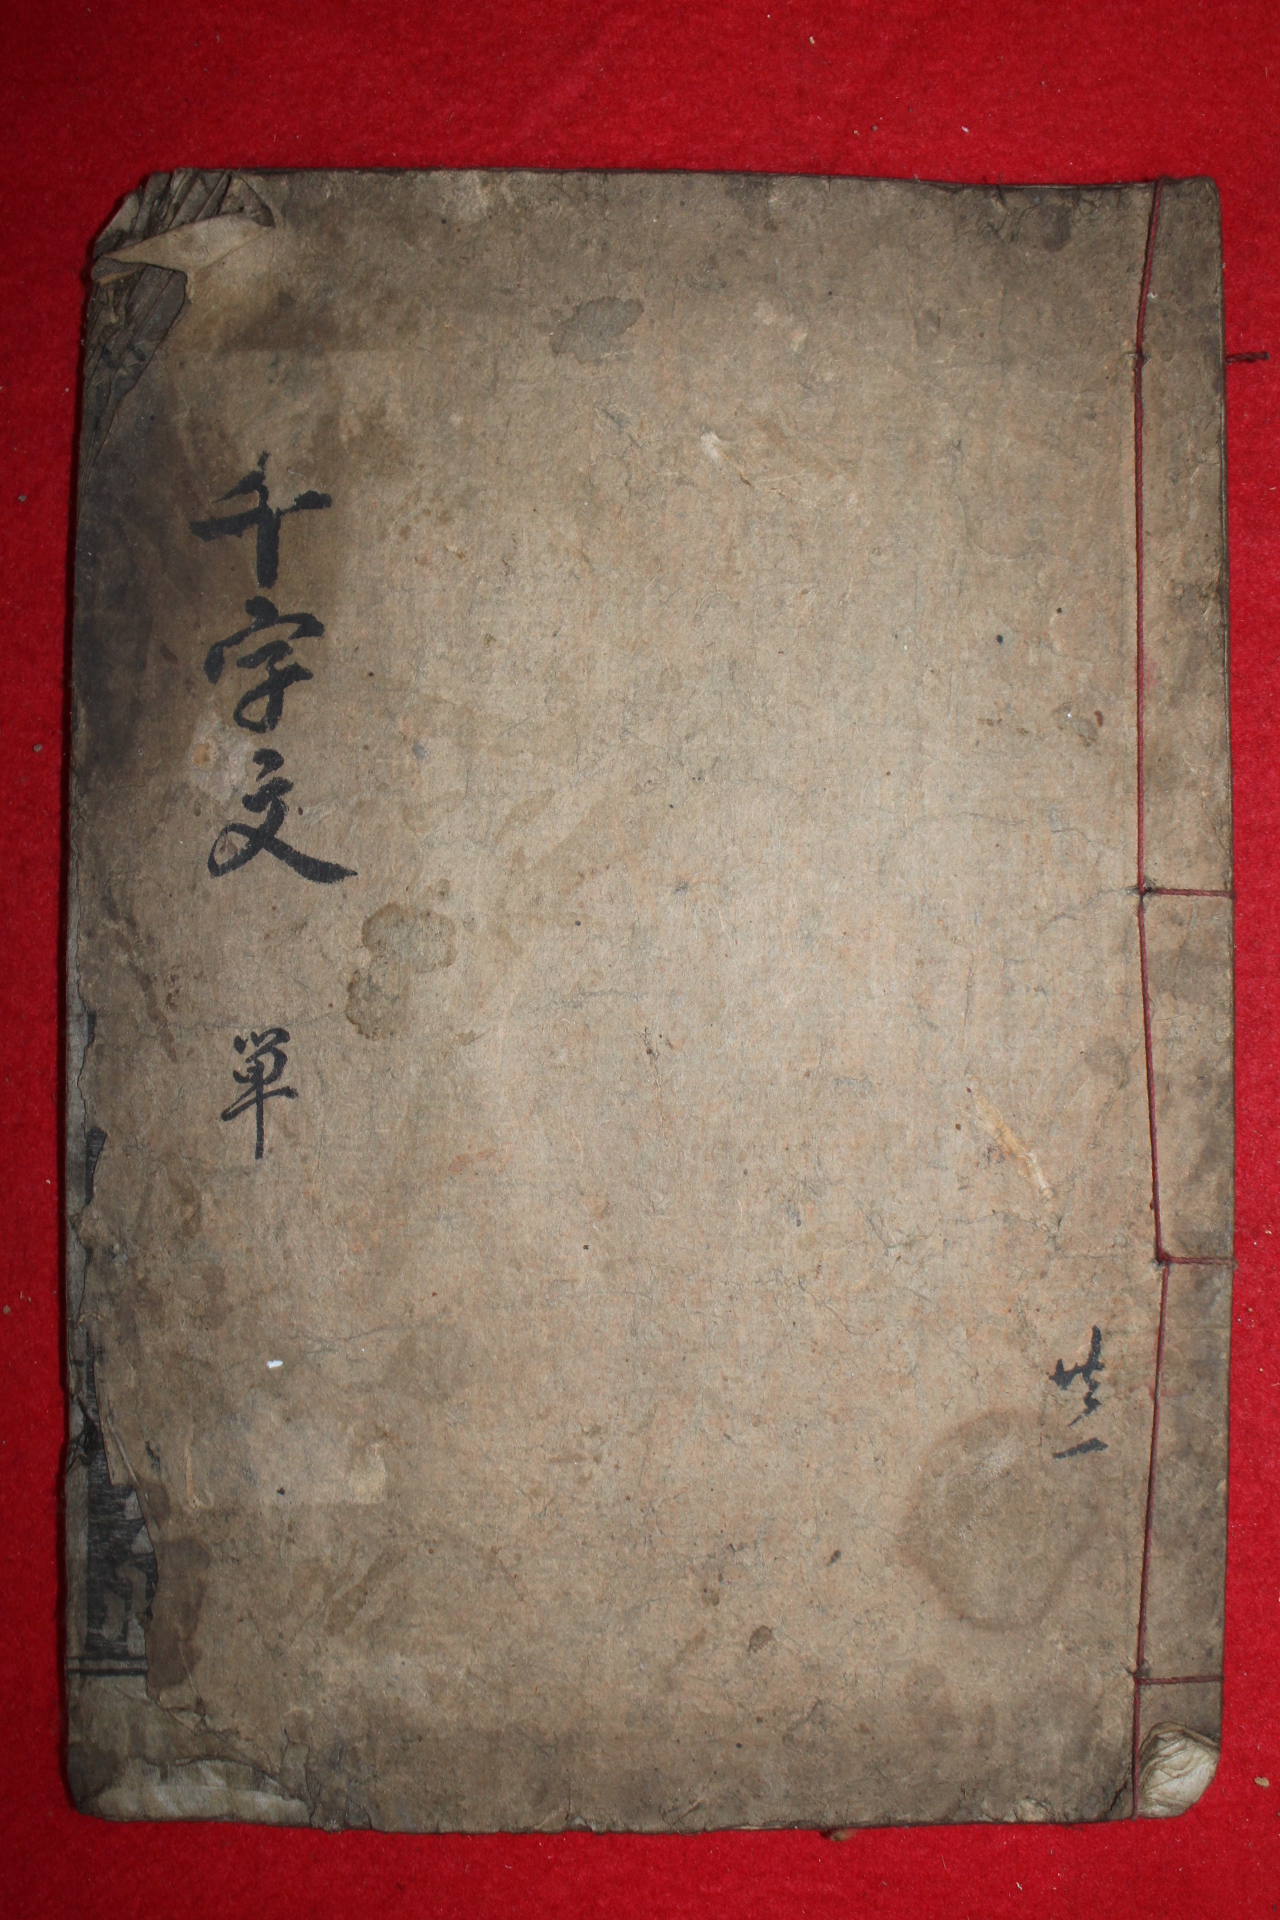 千字文 単
共一